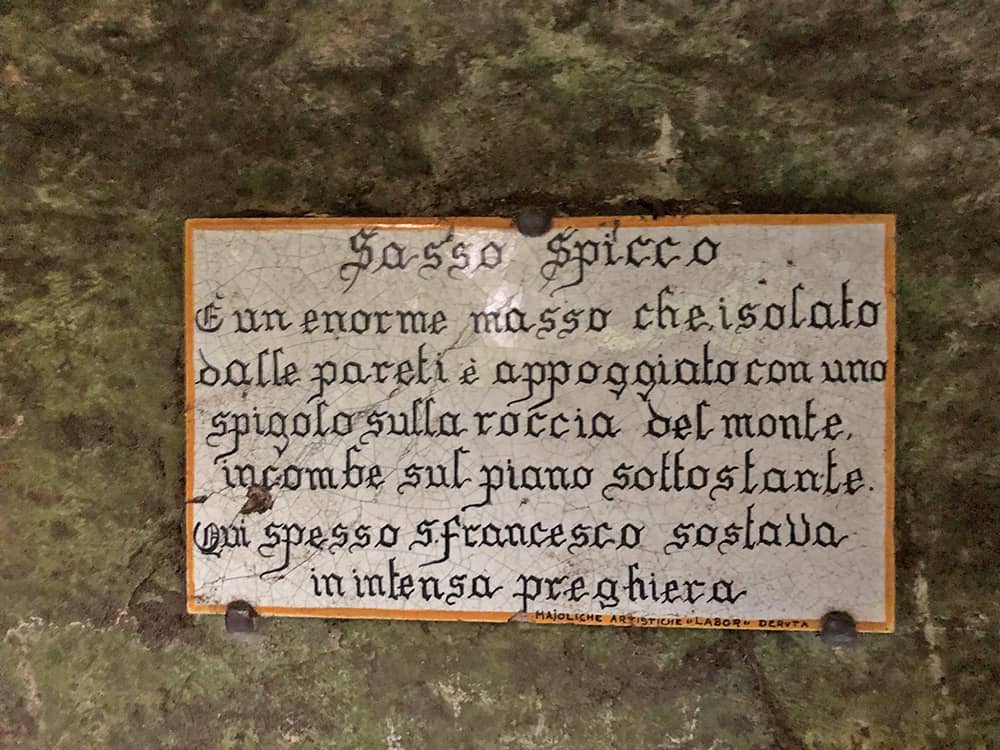 Sasso Spicco
È un enorme masso che, isolato
dalle pareti è appoggiato con uno
spigolo sulla roccia del monte,
incombe sul piano sottostante.
Qui spesso S. Francesco sostava
in intensa preghiera
MAJOLICHE ARTISTICHE "LABOR" DERUTA